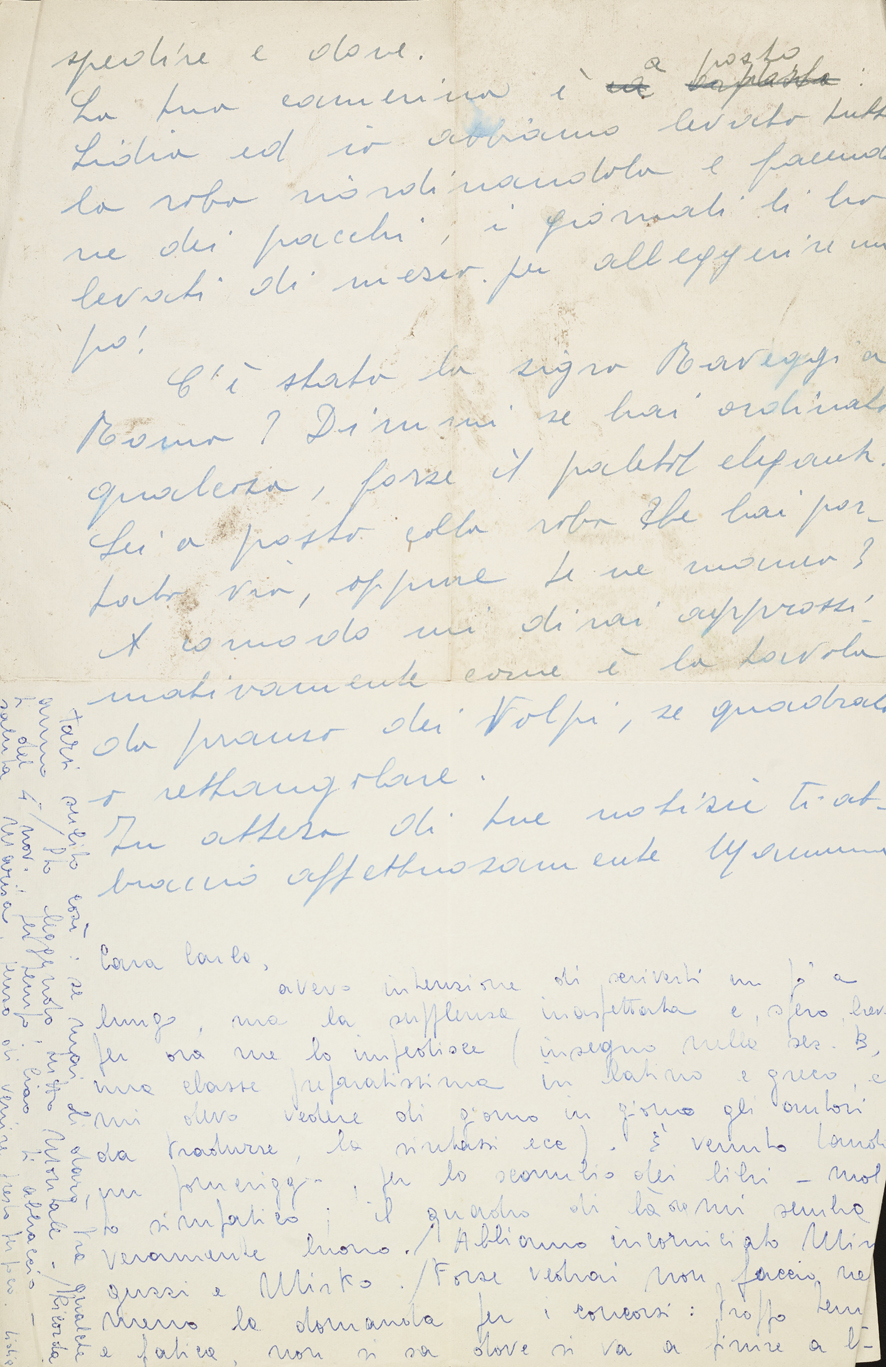 spedire e dove.
La tua camerina è a posto :
Lidia ed io abbiamo levato tutt
la roba riordinandola e facendo
ne dei pacchi, i giornali li ho
levati di mezzo per alleggerire un
po'!
C'è stata la sigra Raveggi a
Roma ? Dimmi se hai ordinato
qualcosa, forse il paletot elegant.
Sei a posto colla roba che hai por-
tato via, oppure te ne manca ?
A comodo mi dirai approssi-
mativamente come è la tavola
da pranzo dei Volpi, se quadrata
o rettangolare.
In attesa di tue notizie ti ab-
braccio affettuosamente Mamma
Cara Carla,
avevo intenzione di scriverti un po' a
lungo, ma la supplenza inaspettata e, spero, breve
per ora me lo impedisce (insegno nella sez. B,
una classe preparatissima in latino e greco, e
mi devo vedere di giorno in giorno gli autori
da tradurre, la sintassi ecc). È venuto
un pomeriggio, per lo scambio dei libri - mol
to simpatico; il quadro di sembra
veramente buono. / Abbiamo incorniciato Min
guzzi e Mirko. / Forse vedrai non faccio ne
meno la domanda per i concorsi: troppo tem
e fatica, non si sa dove si va a finire a
tarsi subito così: se mai di darà tra qualche
anno / Ho letto Montale - / Ricorda
ti del 4 nov. per tempo. Ciao ti abbraccio -
saluta Marisa, penso di venire presto Lidia